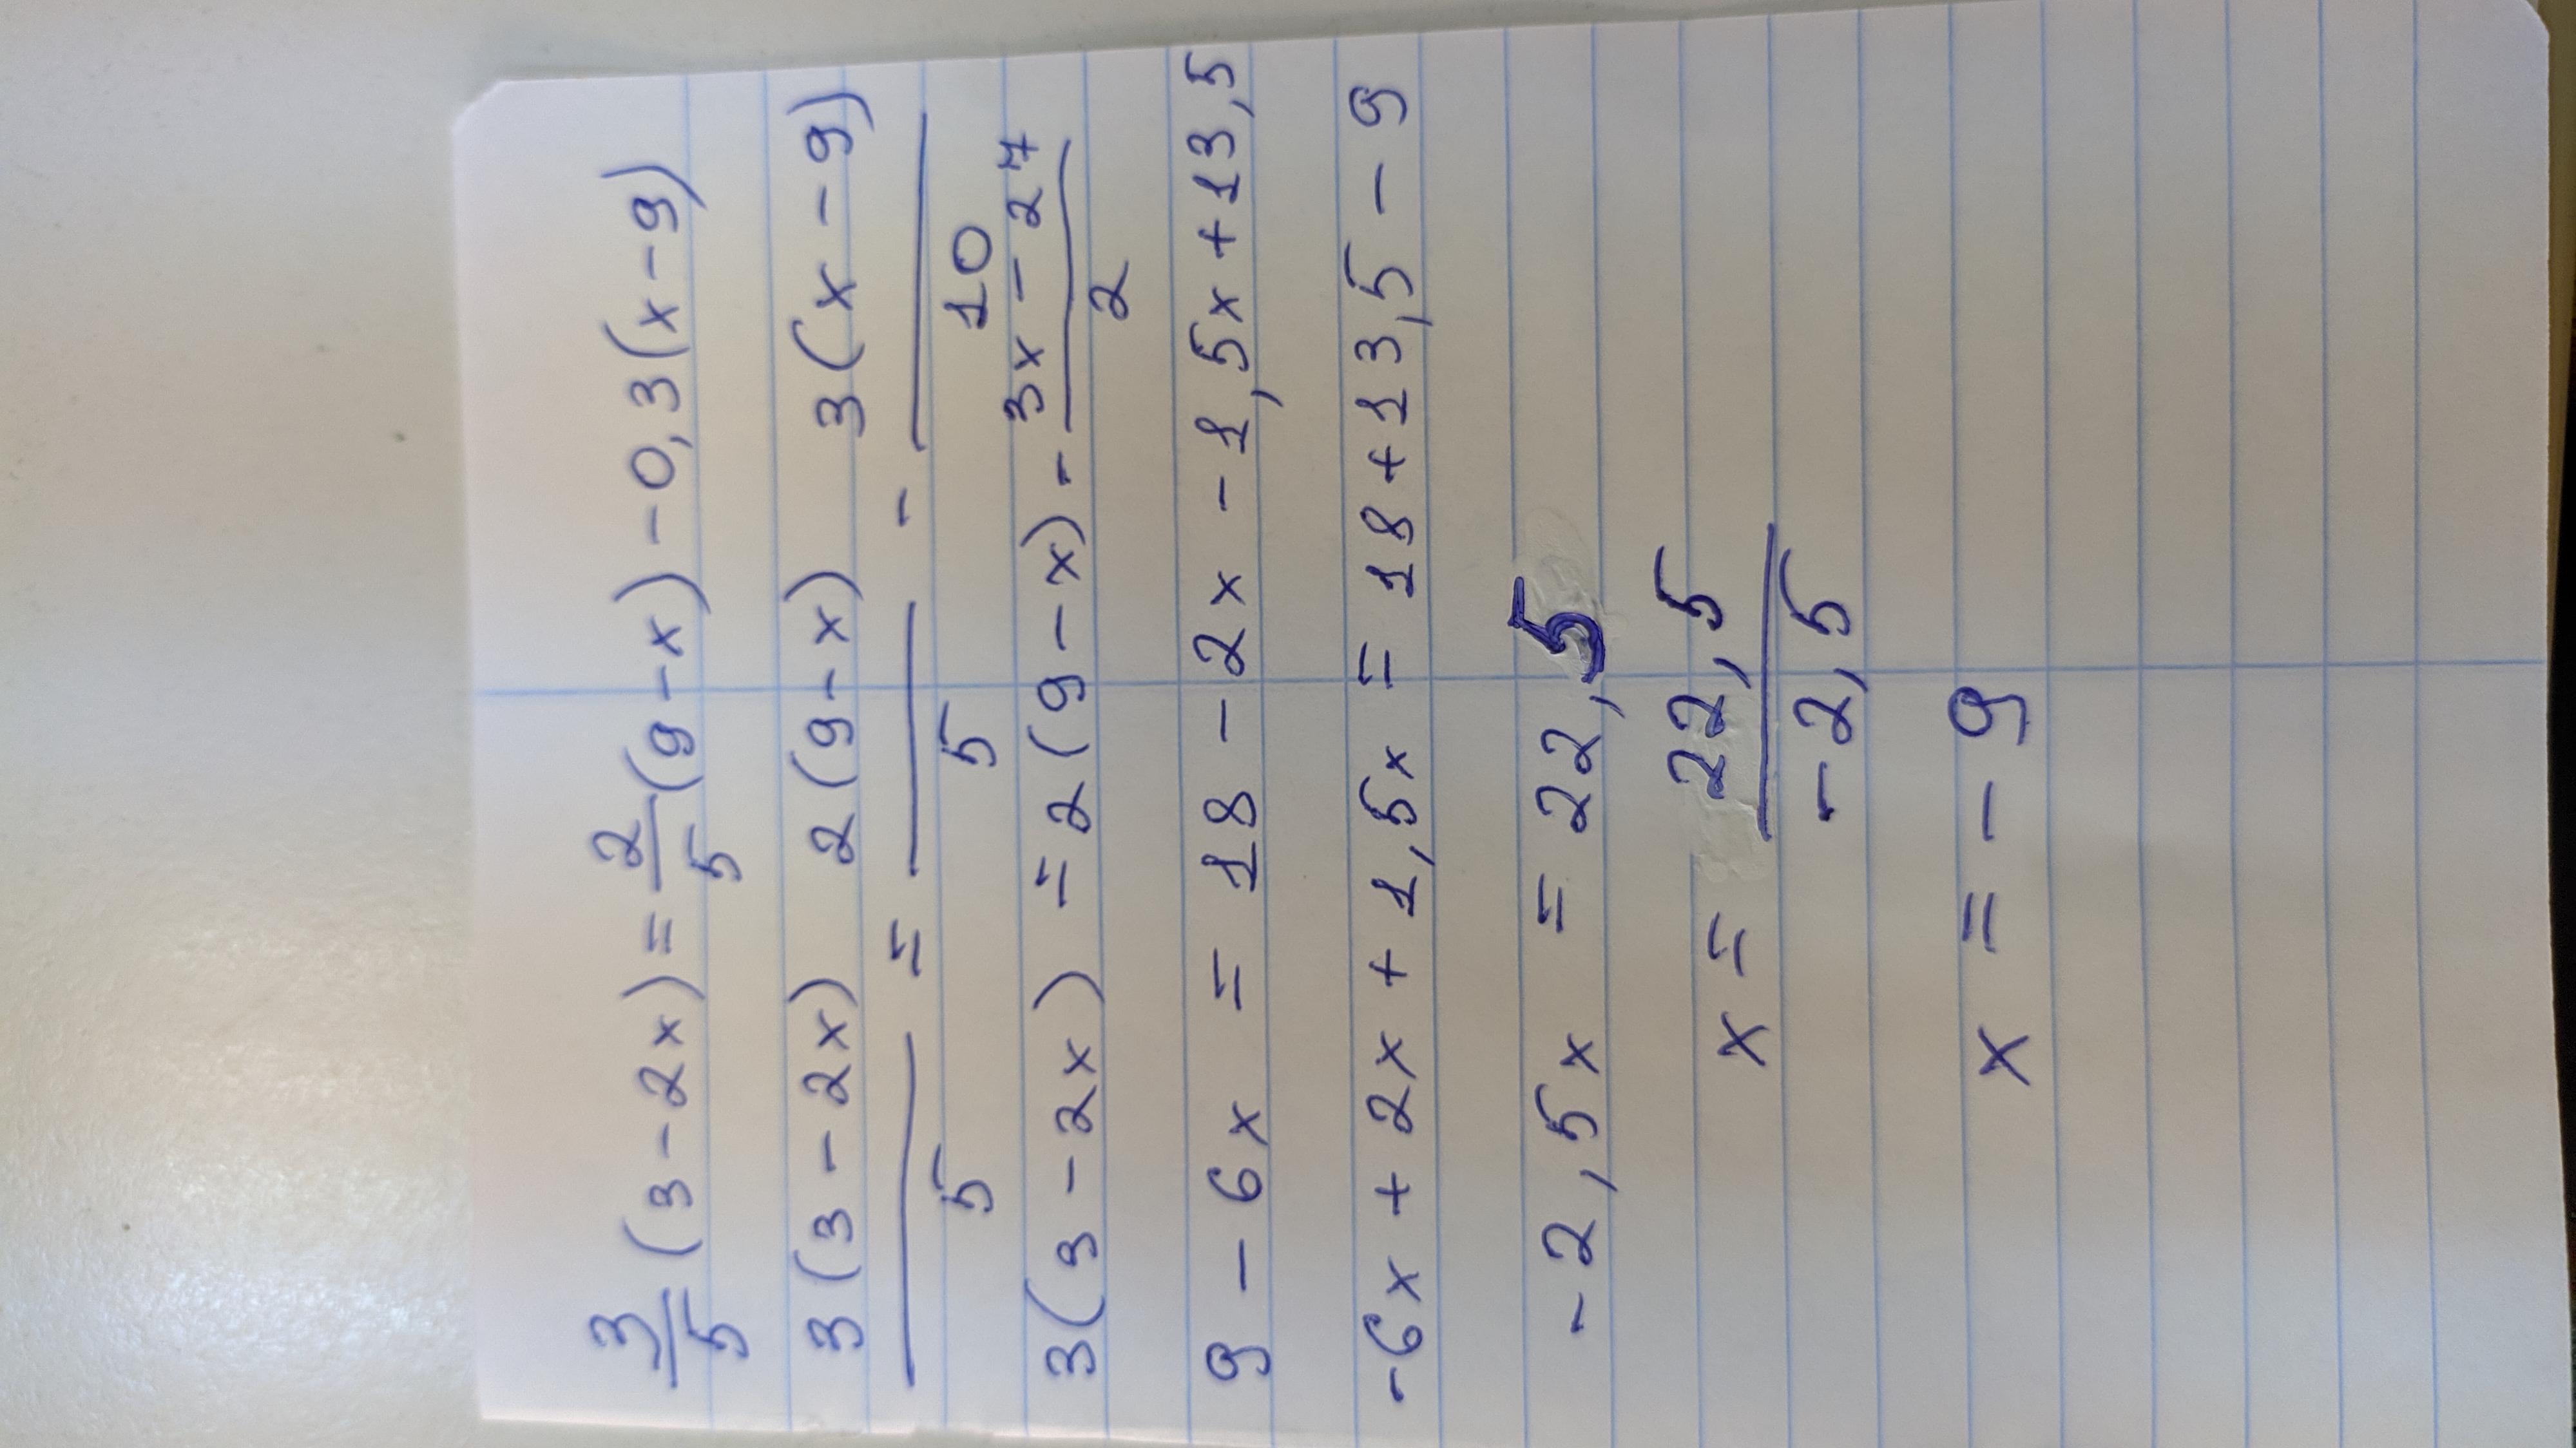 3/5 (3-2x) = 2/5 (9-x) - 0,3 (x-9)
3(3-2x)/5 = 2(9-x)/5 - 3(x-9)/10
3(3-2x) = 2(9-x) - 3x-27/2
9 - 6x = 18 - 2x - 1,5x + 13,5
-6x + 2x + 1,5x = 18 + 13,5 - 9
-2,5x = 22,5
x = 22,5/-2,5
x = -9